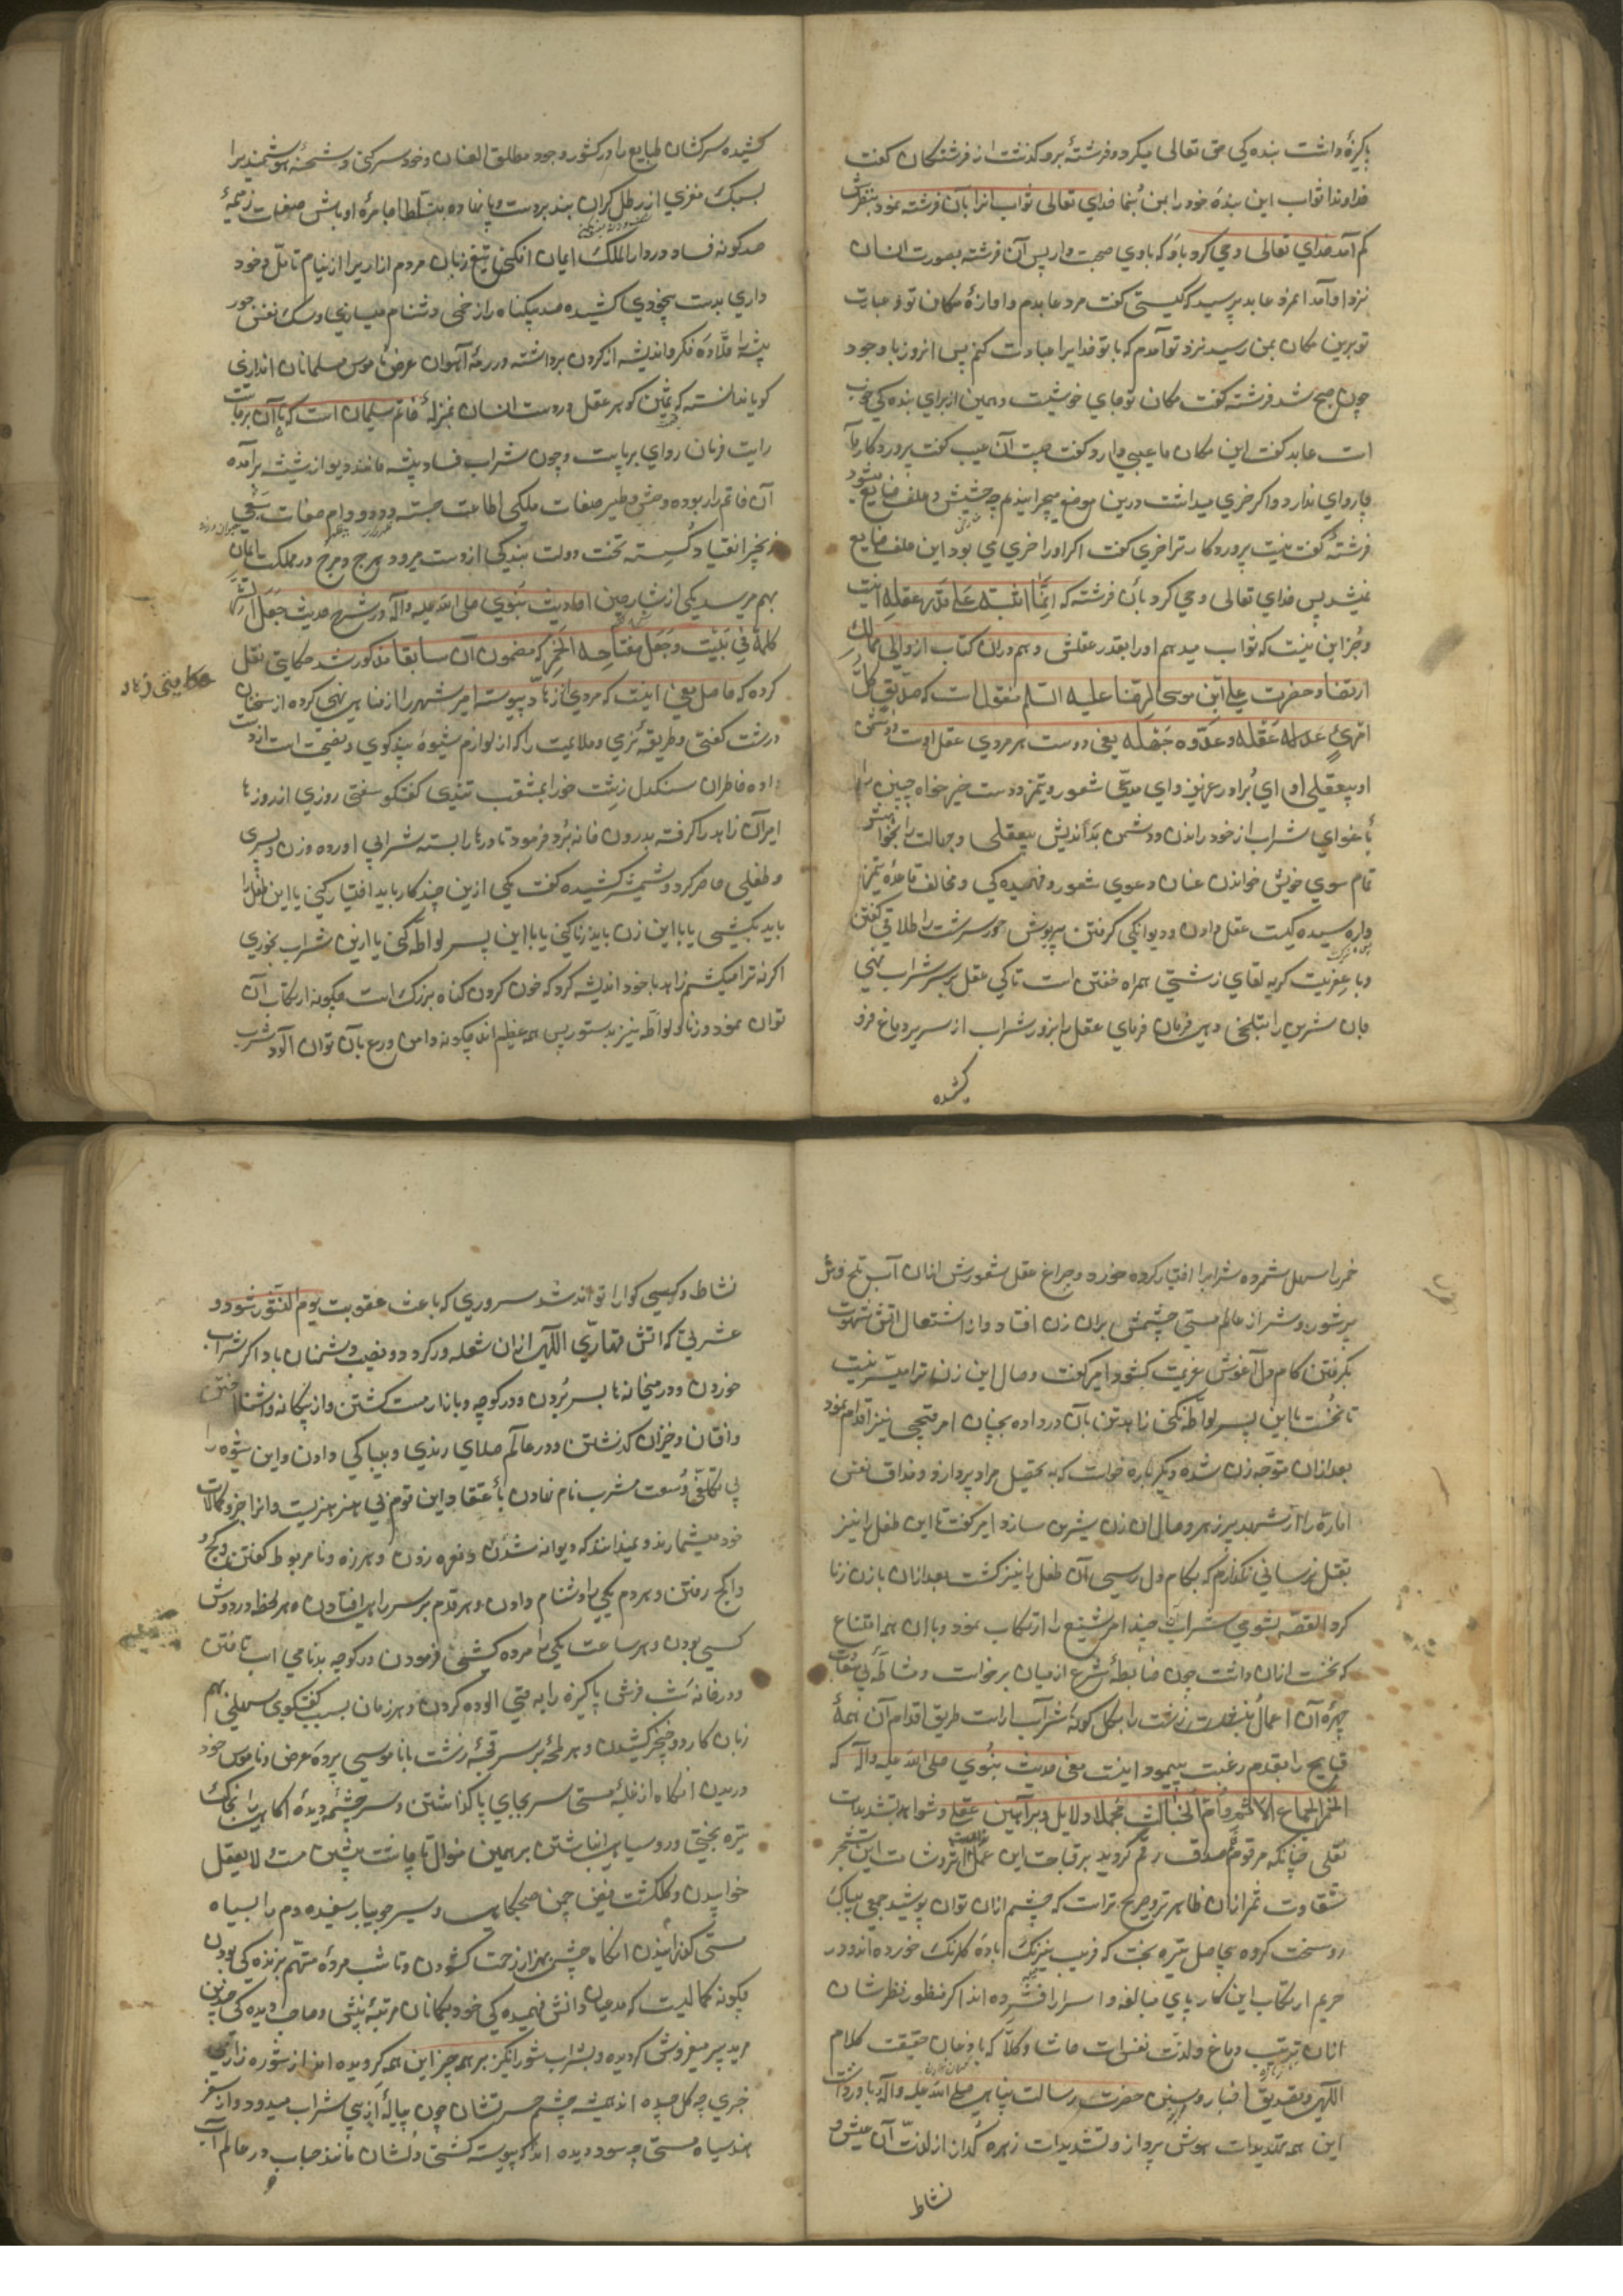 پاکیزهٔ داشت بنده کی حق تعالی میکرد و فرشتهٔ برو کذشت از فرشتکان کفت
خداوندا ثواب این بندهٔ خود را بمن بنما خدای تعالی ثواب انرا بآن فرشته نمود بنظرش
کم آمد خدای تعالی وحی کرد باو که با وی صحبت دار پس آن فرشته بصورت انسان
نزد او آمد عابد پرسید که کیستی کفت مرد عابدم و اوازهٔ مکان تو و عبادت
تو برین مکان بمن رسید نزد تو آمدم که با تو خدایرا عبادت کنم پس انروز با وجود
چون صبح شد فرشته کفت مکان تو جای خوشیست و همین از برای بنده کی خوب
است عابد کفت این مکان ما عیبی دارد کفت چیست آن عیب کفت پروردکار ما
چاروای ندارد و اکر خری میداشت درین موضع میچرانیدم چه حشیش و علف ضایع میشود
فرشته کفت نیست پروردکار ترا خری کفت اکر او را خری می بود این علف ضایع
نمیشد پس خدای تعالی وحی کرد بآن فرشته که اِنَّما اثیبُه عَلی قَدرِ عقلِه اینست
و جز این نیست که ثواب میدهم او را بقدر عقلش و هم دران کتاب از والی ممالک
ارتضا و حضرت علی ابن موسی الرضا علیه السلم منقول است که صَدیقُ کلّ
امْرِئٍ عَقلُه و عَدوّه جَهلُه یعنی دوست هر مردی عقل اوست و دشمن
او بیعقلی او ای برادر عزیز و ای مدعی شعور و تمیز دوست خیر خواه چنین را
باغوای شراب از خود راندن و دشمن بداندیش بیعقلی و جهالت را بخواهش
تمام سوی خویش خواندن عنان دعوی شعور و فهمیده کی و مخالف قاعدهٔ تمیز
واره سیده کیست عقل دادن و دیوانکی کرفتن پریوش حور سرشت را طلاق کفتن
و با عفریت کریه لقای زشتی همراه خفتن است تا کی عقل بر سر شراب نهی
جان شیرین را بتلخی دهی فرمان فرمای عقل را بزور شراب از سریر دماغ فرو
کشیده
کشیده سرکشان طبایع را در کشور وجود مطلق العنان و خود سر کنی و شحنهٔ هوشمندیرا
بسبک مغزی از رطل کران بند بر دست و پا نهاده بتسلط اجامرهٔ اوباش صفات ذمیمهٔ
صد کونه فساد در دار الملک ایمان افکنی تیغ زبان مردم ازاریرا از نیام تامل و خود
داری بدست بیخودی کشیده صد بیکناه را زخمی دشنام میسازی و سک نفس جور
پیشه را قلّادهٔ فکر و اندیشه از کردن برداشته در رمهٔ آهوان عرض ناموس مسلمانان اندازی
کویا ندانسته که ثمین کوهر عقل در دست انسان بمنزلهٔ خاتم سلیمان است که با آن برپاست
رایت فرمان روای برپاست و چون شراب فساد پیشه مانند دیو از شیشه برآمده
آن خاتم را ربوده وحش و طیر صفات ملکی اطاعت جسته و دد و دام صفات سبعی
زنجیر انقیاد کسسته تخت دولت بندکی از دست میرود هرج و مرج در مملکت ایمان
بهم میرسد یکی از شارحین احادیث نبوی صلی الله علیه و آله در شرح حدیث جَعَل الشرّ
کلّه فی بَیت و جَعَل مِفتاحه الخَمر که مضمون آن سابقا مذکور شد حکایتی نقل
حکایتی زهاد
کرده که حاصل معنی اینست که مردی از زهاد پیوسته امیر شهر را از مناهی نهی کرده از سخنان
درشت کفتی و طریقهٔ نرمی و ملایمت را که از لوازم شیوهٔ پند کوی و نصیحت است از دست
داده خاطر ان سنکدل زشت خو را بمثقب تندی کفتکو سفتی روزی از روزها
امیر آن زاهد را کرفته بدرون خانه برد و فرمود تا درها را بسته شرابی آورده و زن و پسری
و طفلی حاضر کرد و شمشیر کشیده کفت یکی ازین چند کار باید اختیار کنی یا این طفل را
باید بکشی یا با این زن باید زنا کنی یا با این پسر لواطه کنی یا ازین شراب بخوری
اکر نه ترا میکشم زاهد با خود اندیشه کرد که خون کردن کناه بزرک است چکونه ارتکاب آن
توان نمود و زنا و لواطه نیز بدستور پس همه عظیم اند چکونه دامن ورع بآن توان آلود شرب
خمر را سهل شمرده شرابرا اختیار کرده خورد و چراغ عقل و شعورش از ان آب تلخ وش
پر شور و شر از عالم مستی چشمش بران زن افتاد و از اشتعال آتش شهوت
بکرفتن کام دل آغوش عزیمت کشود امیر کفت وصال این زن ترا میسر نیست
تا نخست با این پسر لواطه نکنی زاهد تن بآن در داده بچنان امر قبیحی نیز اقدام نمود
بعد از ان متوجه زن شده دیکر باره خواست که به تحصیل مراد پردازد و مذاق نفس
اماره را از شهد پر زهر وصال ان زن شیرین سازد امیر کفت تا این طفل را نیز
بقتل نرسانی نکذارم که بکام دل رسی آن طفل را نیز کشت بعد از ان با زن زنا
کرد القصه بشومی شراب چند امر شنیع را ارتکاب نمود و با ان همه امتناع
که نخست ازان داشت چون ضابطهٔ شرع از میان برخاست و مشاطهٔ بی سعادت
چهرهٔ آن اعمال زشت را بکل کونهٔ شراب آراست طریق اقدام آن همهٔ
قبایح را بقدم رغبت پیمود و اینست معنی حدیث نبوی صلی الله علیه و آله که
الخمر جماع الاثم و اُمّ الخبائث مجملا دلایل و براهین عقلی و شواهد تشدیدات
نقلی چنانکه مرقوم قلم صدق رقم کردید بر قباحت این عمل و شئامت این شجر
شقاوت ثمر ازان ظاهر تر و صریح تر است که چشم ازان توان پوشید جمعی بیباک
رو سخت کرده بیحاصل تیره بخت که فریب نیرنک بادهٔ کلرنک خورده اند و در
حریم ارتکاب این کار پای مبالغه و اسرار افشرده اند اکر منظور نظرشان
ازان ترتیب دماغ و لذت نفس است حاشا و کلا که با وجود حقیقت کلام
الهی و تصدیق اخبار حضرت رسالت پناهی صلی الله علیه و آله و باور داشت
این همه تهدیدات هوش پرداز و تشدیدات زهره کداز از لذت آن عیش و
نشاط
نشاط و کیسی کوارا تواند شد سروری که باعث عقوبت یوم النشور شود و
عشرتی که اتش قهاری اللهی ازان شعله ور کردد و نصیب دشمنان باد اکر شراب
خوردن و در میخانه ها بسر بردن و در کوچه و بازار مست کشتن و از بیکانه و اشنا
و افتان و خیزان کذشتن و در عالم صلای رندی و بیباکی دادن و این شیوه را
بی تکلفی و وسعت مشرب نام نهادن باعتقاد این قوم بی هنر هنریست و انرا جزو کمالات
خود میشمارند و نمیدانند که دیوانه شدن و نعره زدن و هرزه و نامربوط کفتن و کج و
واکج رفتن و هر دم یکی را دشنام دادن و هر قدم بر سر راهی افتادن و هر لحظه بر دوش
کسی بودن و هر ساعت یکی را مرده کشی فرمودن در کوچه بدنامی اسب تاختن
و در خانه شب فرش پاکیزه را به قی الوده کردن و هر زمان بسبب کفتکوی سهلی بهم
زبان کارد و خنجر کشیدن و هر لمحه بر سر قحبهٔ زشت با ناموسی پردهٔ عرض و ناموس خود
دریدن انکاه از غلبهٔ مستی سر بجای پا کذاشتن و سر چشمهٔ دیدهٔ اکاهی را بخاک
تیره بختی و رو سیاهی انباشتن بر همین منوال تا چاشت پشین مست و لا یعقل
خوابیدن و کلکشت فیض چمن صبحکاهی و سیر جویبار سفیده دم را بسیاه
مستی کذرانیدن انکاه چشمی بهزار زحمت کشودن و تا شب مردهٔ متهم بزنده کی بودن
چکونه کمالیست که مدعیان دانش فهمیده کی خود بیکانان مرتبهٔ بینش و صاحب دیده کی چنین
مرید پیر میفروش کردیده و بشراب شور انکیز بر همه چیز این همه کرویده اند از شوره زار
خبری چه کل چیده اند همیشه چشم حسرتشان چون پیالهٔ از پی شراب میدود و از سفر
هند سیاه مستی چه سود دیده اند که پیوسته کشتی دلشان مانند حباب در عالم آب